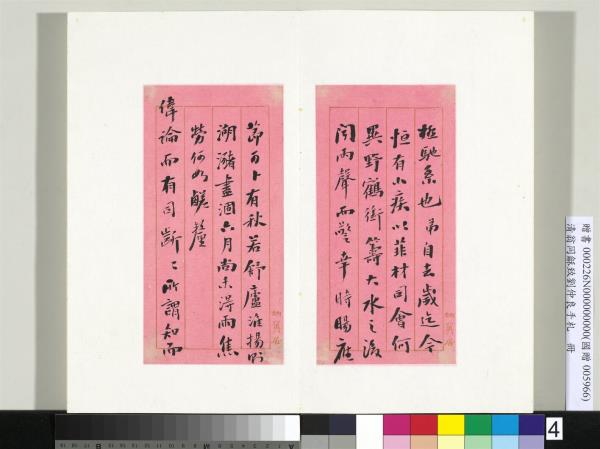 極馳系也弟自去歲迄今
恒有小疾以菲材司會何
異野鶴衔籌大水之後
聞雨聲而驚幸時暘應
節可卜有秋若舒廬淮揚則
湖瀦盡涸六月尚未得雨焦
勞何如鹾釐
偉論而有司齗〻所謂知而
贈書 000226N000000000(國贈 005966)
清翁同龢致劉仲良手札 冊
4